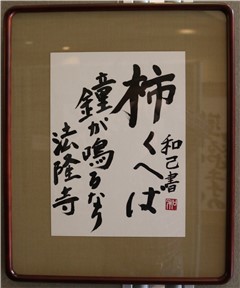 柿くへは
鐘が鳴るなり
法隆寺
和己書